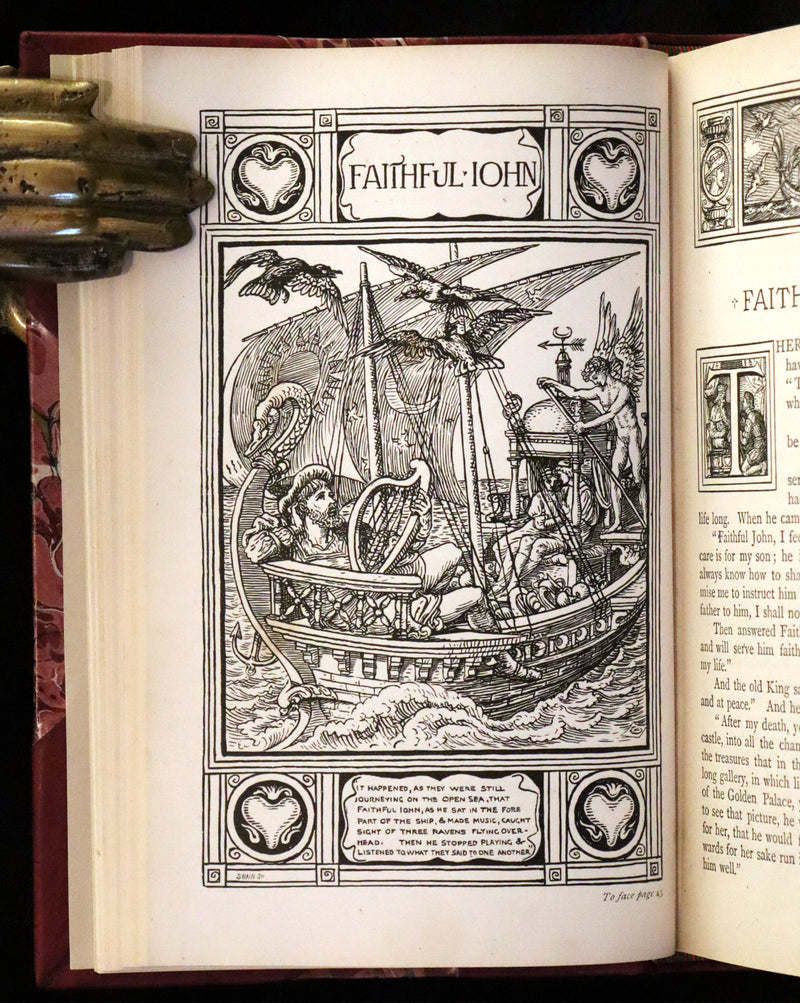 FAITHFUL·IOHN
IT HAPPENED, AS THEY WERE STILL
JOURNEYING ON THE OPEN SEA, THAT
FAITHFUL IOHN, AS HE SAT IN THE FORE
PART OF THE SHIP, & MADE MUSIC, CAUGHT
SIGHT OF THREE RAVENS FLYING OVER-
HEAD. THEN HE STOPPED PLAYING &
LISTENED TO WHAT THEY SAID TO ONE ANOTHER
SWAIN SC
To face page 43
FAITH
T
HER
hav
"T
wh
be
ser
ha
life long. When he cam
"Faithful John, I fee
care is for my son; he i
always know how to sha
mise me to instruct him
father to him, I shall no
Then answered Fait
and will serve him faith
my life."
And the old King sa
and at peace." And he
"After my death, yo
castle, into all the cham
the treasures that in th
long gallery, in which li
of the Golden Palace,
to see that picture, he
for her, that he would f
wards for her sake run
him well."